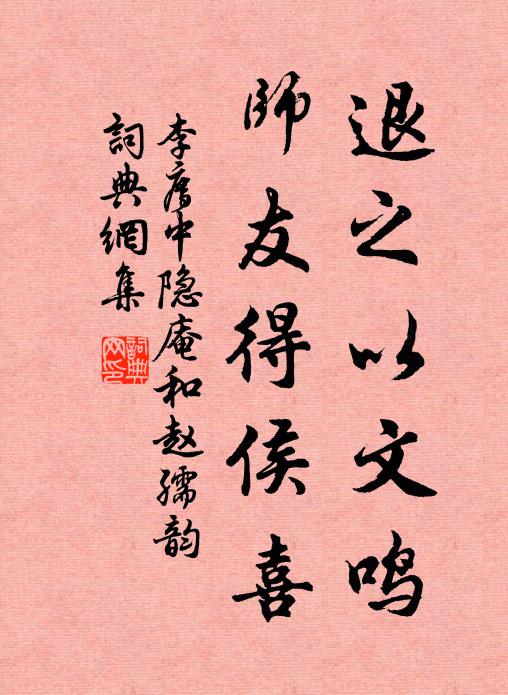 退之以文鸣
師友得侯喜
李廌中隐庵和赵孺韵
詞典網集
詞典网印